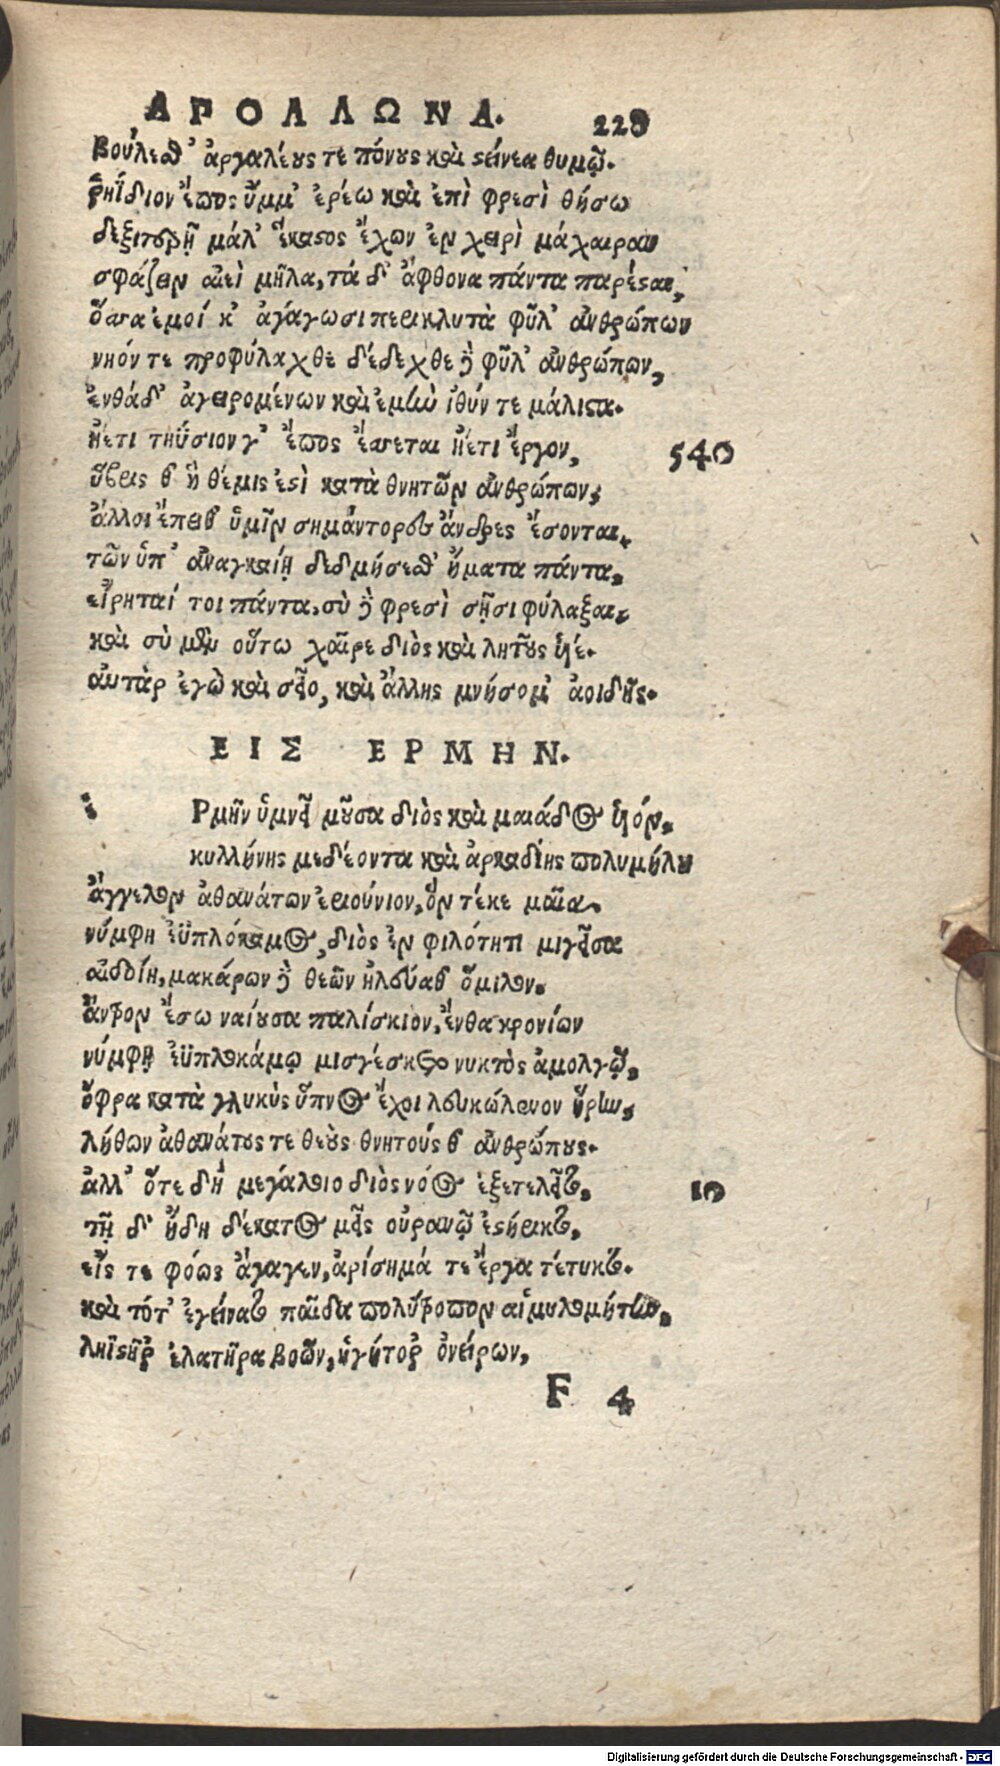 ΑΠΟΛΛΩΝΑ. 229
βούλεσθ' ἀργαλέους τε πόνους καὶ στείνεα θυμῷ.
ῥηΐδιον ἔπος ὔμμ' ἐρέω καὶ ἐπὶ φρεσὶ θήσω
δεξιτερῇ μάλ' ἕκαστος ἔχων ἐν χειρὶ μάχαιραν
σφάζειν αἰεὶ μῆλα, τὰ δ' ἄφθονα πάντα παρέσται,
ὅσσα ἐμοί κ' ἀγάγωσι περικλυτὰ φῦλ' ἀνθρώπων
νηόν τε προφύλαχθε δέδεχθε δὲ φῦλ' ἀνθρώπων,
ἐνθάδ' ἀγειρομένων καὶ ἐμὴν ἰθύν τε μάλιστα.
ἠέτι τηΰσιον γ' ἔπος ἔσσεται ἠέτι ἔργον, 540
ὕβρις θ' ἣ θέμις ἐστὶ κατὰ θνητῶν ἀνθρώπων,
ἄλλοι ἔπειθ' ὑμῖν σημάντορες ἄνδρες ἔσονται,
τῶν ὑπ' ἀναγκαίῃ δεδμήσεσθ' ἤματα πάντα,
εἴρηταί τοι πάντα, σὺ δὲ φρεσὶ σῇσι φύλαξαι,
καὶ σὺ μὲν οὕτω χαῖρε διὸς καὶ λητοῦς υἱέ.
αὐτὰρ ἐγὼ καὶ σεῖο, καὶ ἄλλης μνήσομ' ἀοιδῆς.
ΕΙΣ ΕΡΜΗΝ.
ε Ρμῆν ὑμνεῖ μοῦσα διὸς καὶ μαιάδος υἱόν,
κυλλήνης μεδέοντα καὶ ἀρκαδίης πολυμήλου
ἄγγελον ἀθανάτων ἐριούνιον, ὃν τέκε μαῖα,
νύμφη ἐϋπλόκαμος, διὸς ἐν φιλότητι μιγεῖσα
αἰδοίη, μακάρων δὲ θεῶν ἠλεύαθ' ὅμιλον,
ἄντρον ἔσω ναίουσα παλίσκιον, ἔνθα κρονίων
νύμφῃ ἐϋπλοκάμῳ μισγέσκετο νυκτὸς ἀμολγῷ,
ὄφρα κατὰ γλυκὺς ὕπνος ἔχοι λευκώλενον ἥρην,
λήθων ἀθανάτους τε θεοὺς θνητούς θ' ἀνθρώπους.
ἀλλ' ὅτε δὴ μεγάλοιο διὸς νόος ἐξετελεῖτο, 10
τῇ δ' ἤδη δέκατος μεὶς οὐρανῷ ἐστήρικτο,
εἴς τε φόως ἄγαγεν, ἀρίσημά τε ἔργα τέτυκτο.
καὶ τότ' ἐγείνατο παῖδα πολύτροπον αἱμυλομήτην,
ληϊστῆρ' ἐλατῆρα βοῶν, ἡγήτορ' ὀνείρων,
F 4
Digitalisierung gefördert durch die Deutsche Forschungsgemeinschaft - DFG